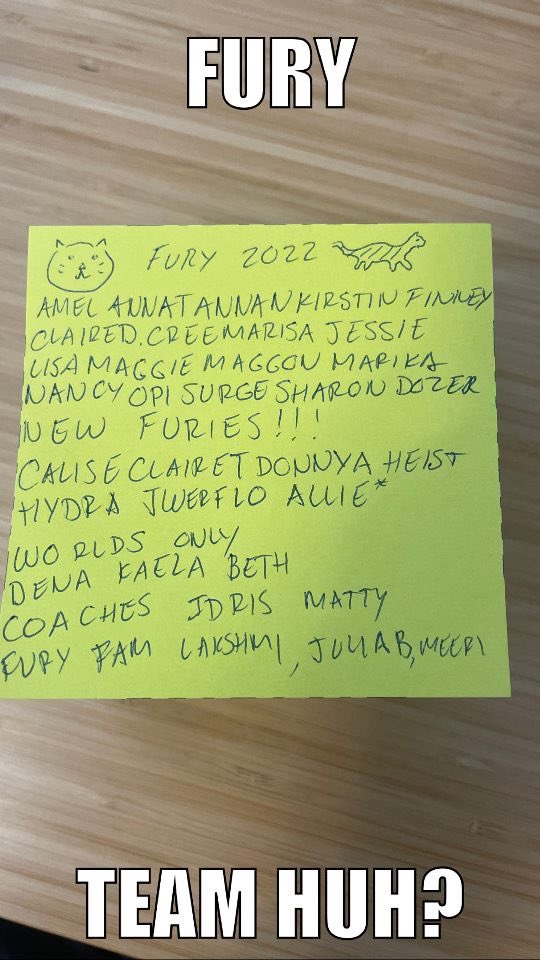 FURY
FURY 2022
AMEL ANNAT ANNAN KIRSTIN FINNEY
CLAIRED. CREE MARISA JESSIE
LISA MAGGIE MAGGON MARIKA
NANCY OPI SURGE SHARON DOZER
NEW FURIES!!!
CALISE CLAIRET DONNYA HEIST
HYDRA JWERFLO ALLIE*
WORLDS ONLY
DENA KAELA BETH
COACHES IDRIS MATTY
FURY FAM LAKSHMI, JULIA B, MEERI
TEAM HUH?